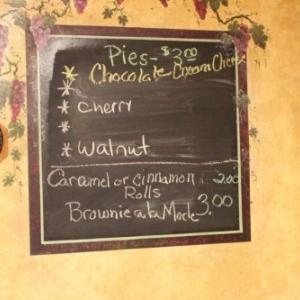 Pies - $3.00
* Chocolate Cream Cheese
*
* Cherry
*
* Walnut
Caramel or Cinnamon 2.00
Rolls
Brownie a la Mode 3.00